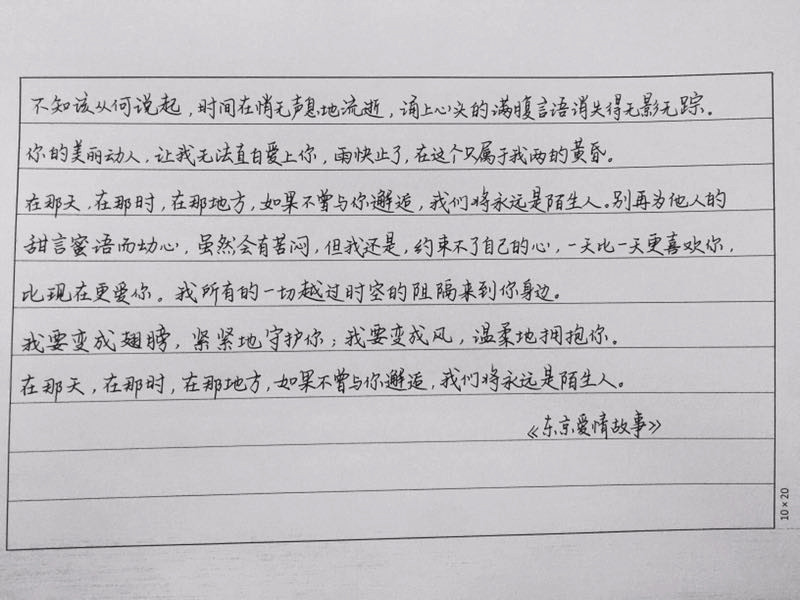 不知该从何说起，时间在悄无声息地流逝，涌上心头的满腹言语消失得无影无踪。
你的美丽动人，让我无法直白爱上你，雨快止了，在这个只属于我两的黄昏。
在那天，在那时，在那地方，如果不曾与你邂逅，我们将永远是陌生人。别再为他人的
甜言蜜语而动心，虽然会有苦闷，但我还是，约束不了自己的心，一天比一天更喜欢你，
比现在更爱你。我所有的一切越过时空的阻隔来到你身边。
我要变成翅膀，紧紧地守护你；我要变成风，温柔地拥抱你。
在那天，在那时，在那地方，如果不曾与你邂逅，我们将永远是陌生人。
《东京爱情故事》
10×20